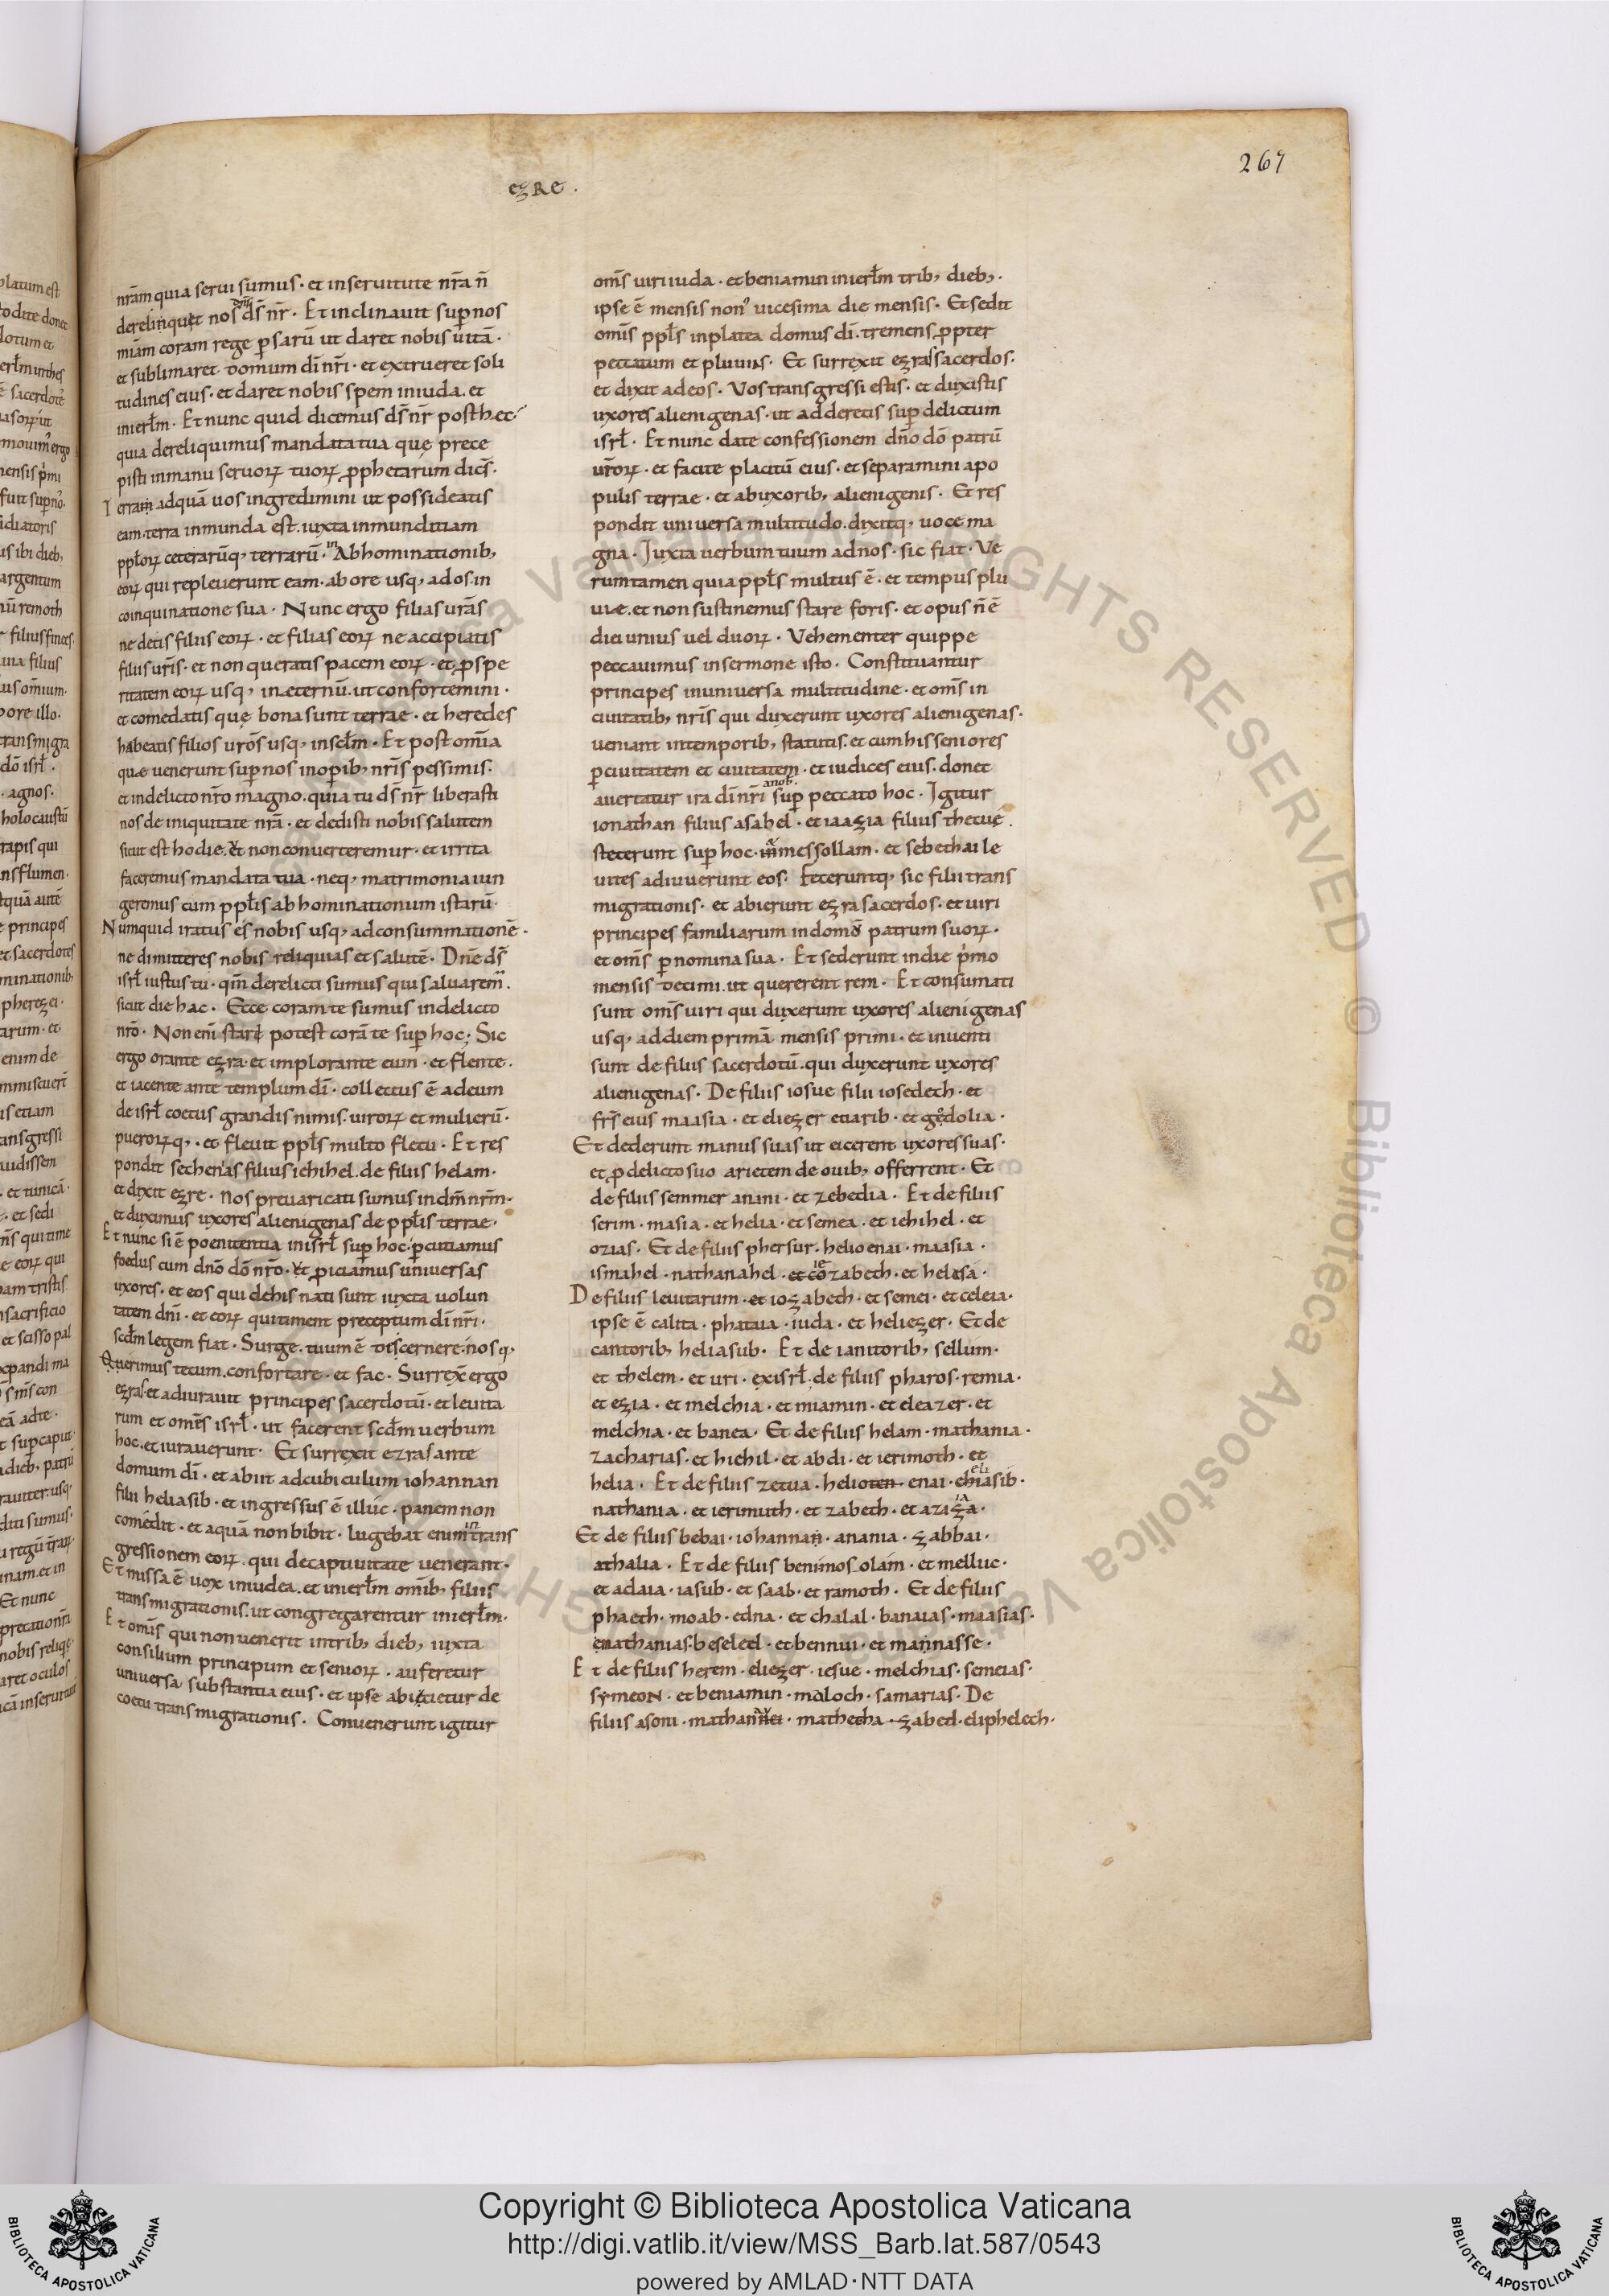 267
ezRe.
nr̄am quia serui sumus · et inseruitute nr̄a n̄
derelinquet nos dn̄s ds̄ nr̄ · Et inclinauit sup̄ nos
miām coram rege p̄sarū ut daret nobis uitā ·
et sublimaret domum dī nr̄i · et extrueret soli
tudines eius · et daret nobis spem iniuda · et
inierl̄m · Et nunc quid dicemus ds̄ nr̄ posthęc·
quia dereliquimus mandata tua quę prece
pisti inmanu seruoꝝ tuoꝝ ꝓphetarum dics̄ ·
Terram adquā uos ingredimini ut possideatis
eam · terra inmunda est · iuxta inmunditiam
ppl̄oꝝ ceterarūq; terrarū · in Abhominationib;
eoꝝ qui repleuerunt eam · ab ore usq; ados · in
coinquinatione sua · Nunc ergo filias ur̄as
ne detis filiis eoꝝ · et filias eoꝝ ne accipiatis
filiis ur̄is · et non queratis pacem eoꝝ · et ꝓspe
ritatem eoꝝ usq; inęternū · ut confortemini ·
et comedatis quę bona sunt terrae · et heredes
habeatis filios ur̄os usq; inscl̄m · Et post om̄ia
quae uenerunt sup̄ nos inopib; nr̄is pessimis ·
et indelicto nr̄o magno · quia tu ds̄ nr̄ liberasti
nos de iniquitate nr̄a · et dedisti nobis salutem
sicut est hodie · ut non conuerteremur · et irrita
faceremus mandata tua · neq; matrimonia iun
geremus cum ppl̄is abhominationum istarū ·
Numquid iratus es nobis usq; adconsummationē ·
ne dimitteres nobis reliquias et salutē · Dn̄e ds̄
isrl̄ iustus tu · qm̄ derelicti sumus qui saluarem̄ ·
sicut die hac · Ecce coram te sumus indelicto
nr̄o · Non enī stare potest corā te sup̄ hoc; Sic
ergo orante ezra · et implorante eum · et flente ·
et iacente ante templum dī · collectus ē adeum
de isrl̄ coetus grandis nimis · uiroꝝ et mulierū ·
pueroꝝq; · et fleuit ppl̄s multo fletu · Et res
pondit sechenias filius iehihel · de filiis helam ·
et dixit ezre · nos preuaricati sumus indm̄ nr̄m ·
et duximus uxores alienigenas de ppl̄is terrae ·
Et nunc si ē poenitentia inisrl̄ sup̄ hoc · p̄cutiamus
foedus cum dn̄o dō nr̄o · ut ꝓiciamus uniuersas
uxores · et eos qui dehis nati sunt iuxta uolun
tatem dn̄i · et eoꝝ qui timent preceptum dī nr̄i ·
scd̄m legem fiat · Surge · tuum ē discernere · nosq;
Querimus tecum · confortare · et fac · Surrex̄ ergo
ezras · et adiurauit principes sacerdotū · et leuita
rum et omēs isrl̄ · ut facerent scd̄m uerbum
hoc · et iurauerunt · Et surrexit ezras ante
domum dī · et abiit adcubiculum iohannan
filii heliasib · et ingressus ē illuc · panem non
comedit · et aquā non bibit · lugebat enim intrans
gressionem eoꝝ · qui decaptiuitate uenerant ·
Et missa ē uox iniudea · et inierl̄m omīb; filiis
transmigrationis · ut congregarentur inierl̄m ·
Et omīs qui non uenerit intrib; dieb; iuxta
consilium principum et senioꝝ · auferetur
uniuersa substantia eius · et ipse abicietur de
coetu transmigrationis · Conuenerunt igitur
omīs uiri iuda · et beniamin inierl̄m trib; dieb; ·
ipse ē mensis non᷒ uicesima die mensis · Et sedit
omīs ppl̄s inplatea domus dī · tremens ꝓpter
peccatum et pluuias · Et surrexit ezras sacerdos ·
et dixit adeos · Vos transgressi estis · et duxistis
uxores alienigenas · ut adderetis sup̄ delictum
isrl̄ · Et nunc date confessionem dn̄o dō patrū
ur̄oꝝ · et facite placitū eius · et separamini apo
pulis terrae · et abuxorib; alienigenis · Et res
pondit uniuersa multitudo · dixitq; uoce ma
gna · Iuxta uerbum tuum adnos · sic fiat · Ve
rumtamen quia ppl̄s multus ē · et tempus plu
uiae · et non sustinemus stare foris · et opus n̄ ē
diei unius uel duoꝝ · Vehementer quippe
peccauimus insermone isto · Constituantur
principes inuniuersa multitudine · et oms̄ in
ciuitatib; nr̄is qui duxerunt uxores alienigenas ·
ueniant intemporib; statutis · et cum his seniores
p̄ ciuitatem et ciuitatem · et iudices eius · donec
auertatur ira dī nr̄i anob̄ sup̄ peccato hoc · Igitur
ionathan filius asahel · et iaazia filius thecue ·
steterunt sup̄ hoc · messollam · et sebethai le
uites adiuuerunt eos · Feceruntq; sic filii trans
migrationis · et abierunt ezra sacerdos · et uiri
principes familiarum indomos patrum suoꝝ ·
et oms̄ p̄ nomina sua · Et sederunt indie p̄mo
mensis decimi · ut quererent rem · Et consumati
sunt oms̄ uiri qui duxerunt uxores alienigenas
usq; addiem primā mensis primi · et inuenti
sunt de filiis sacerdotū · qui duxerunt uxores
alienigenas · De filiis iosue filii iosedech · et
frs̄ eius maasia · et eliezer et iarib · et godolia ·
Et dederunt manus suas ut eicerent uxores suas ·
et ꝓ delicto suo arietem de ouib; offerrent · Et
de filiis semmer anani · et zebedia · Et de filiis
serim · masia · et helia · et semea · et iehihel · et
ozias · Et de filiis phersur · helioenai · maasia ·
ismahel · nathanahel · iozabeth · et helasa ·
De filiis leuitarum · et iozabeth · et semei · et celeia ·
ipse ē calita · phataia · iuda · et heliezer · Et de
cantorib; heliasub · Et de ianitorib; sellum ·
et thelem · et uri · exisrl̄ · de filiis pharos · remia ·
et ezia · et melchia · et miamin · et eleazer · et
melchia · et banea · Et de filiis helam · mathania ·
zacharias · et hiehil · et abdi · et ierimoth · et
helia · Et de filiis zetua · helioenai · eliasib ·
nathania · et ierimuth · et zabeth · et aziza ·
Et de filiis bebai · iohannan · anania · zabbai ·
athalia · Et de filiis beni mosolam · et melluc ·
et adaia · iasub · et saab · et ramoth · Et de filiis
phaeth · moab · edna · et chalal · banaias · maasias ·
mathanias · beseleel · et bennui · et mannasse ·
Et de filiis herem · eliezer · iesue · melchias · semeias ·
symeon · et beniamin · maloch · samarias · De
filiis asom · mathannei · mathetha · zabed · eliphelech ·
Copyright © Biblioteca Apostolica Vaticana
http://digi.vatlib.it/view/MSS_Barb.lat.587/0543
powered by AMLAD·NTT DATA
BIBLIOTECA APOSTOLICA VATICANA
BIBLIOTECA APOSTOLICA VATICANA